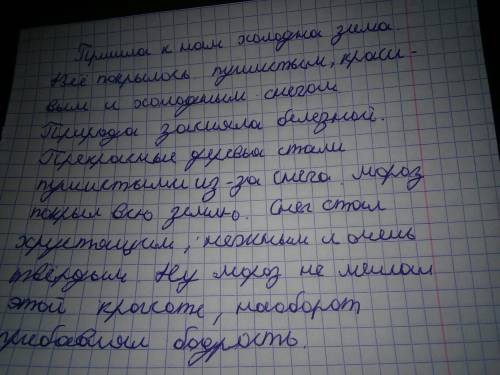 Пришла к нам холодна зима.
Всё покрылось пушистым, краси-
вым и холодным снегом
Природа засияла белезной.
Прекрасные деревья стали
пушистыми из-за снега. мороз
покрыл всю землю. Снег стал
хрустящим, нежным и очень
твёрдым Ну мороз не мешал
этой красоте, наоборот
прибавлял бодрость.